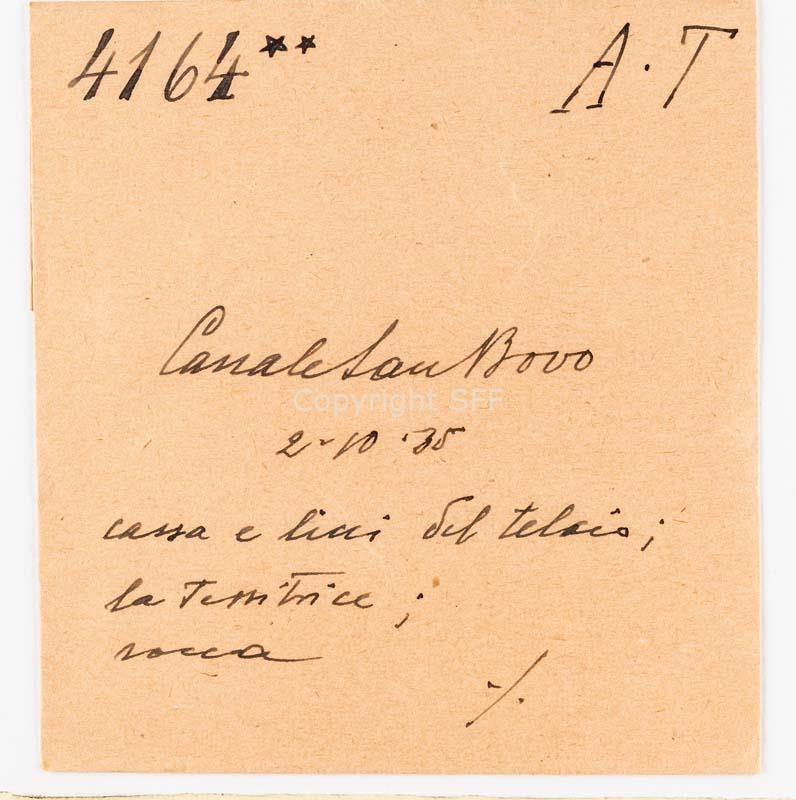 4164** A·T
Canale San Bovo
Copyright SFF
2-10-35
cassa e licci del telaio;
la tessitrice;
rocca
./.